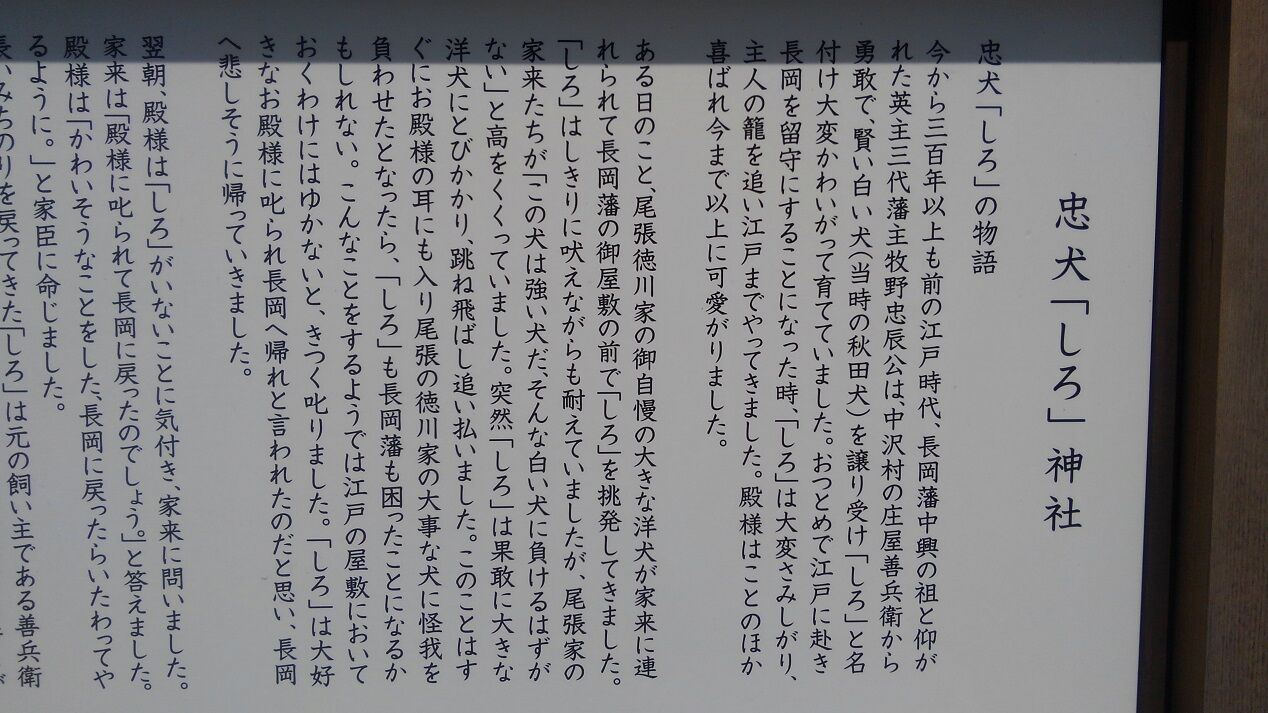 忠犬「しろ」神社
忠犬「しろ」の物語
今から三百年以上も前の江戸時代、長岡藩中興の祖と仰が
れた英主三代藩主牧野忠辰公は、中沢村の庄屋善兵衛から
勇敢で、賢い白い犬(当時の秋田犬)を譲り受け「しろ」と名
付け大変かわいがって育てていました。おつとめで江戸に赴き
長岡を留守にすることになった時、「しろ」は大変さみしがり、
主人の籠を追い江戸までやってきました。殿様はことのほか
喜ばれ今まで以上に可愛がりました。
ある日のこと、尾張徳川家の御自慢の大きな洋犬が家来に連
れられて長岡藩の御屋敷の前で「しろ」を挑発してきました。
「しろ」はしきりに吠えながらも耐えていましたが、尾張家の
家来たちが「この犬は強い犬だ、そんな白い犬に負けるはずが
ない」と高をくくっていました。突然「しろ」は果敢に大きな
洋犬にとびかかり、跳ね飛ばし追い払いました。このことはす
ぐにお殿様の耳にも入り尾張の徳川家の大事な犬に怪我を
負わせたとなったら、「しろ」も長岡藩も困ったことになるか
もしれない。こんなことをするようでは江戸の屋敷において
おくわけにはゆかないと、きつく叱りました。「しろ」は大好
きなお殿様に叱られ長岡へ帰れと言われたのだと思い、長岡
へ悲しそうに帰っていきました。
翌朝、殿様は「しろ」がいないことに気付き、家来に問いました。
家来は「殿様に叱られて長岡に戻ったのでしょう。」と答えました。
殿様は「かわいそうなことをした、長岡に戻ったらいたわってや
るように。」と家臣に命じました。
長いみちのりを戻ってきた「しろ」は元の飼い主である善兵衛